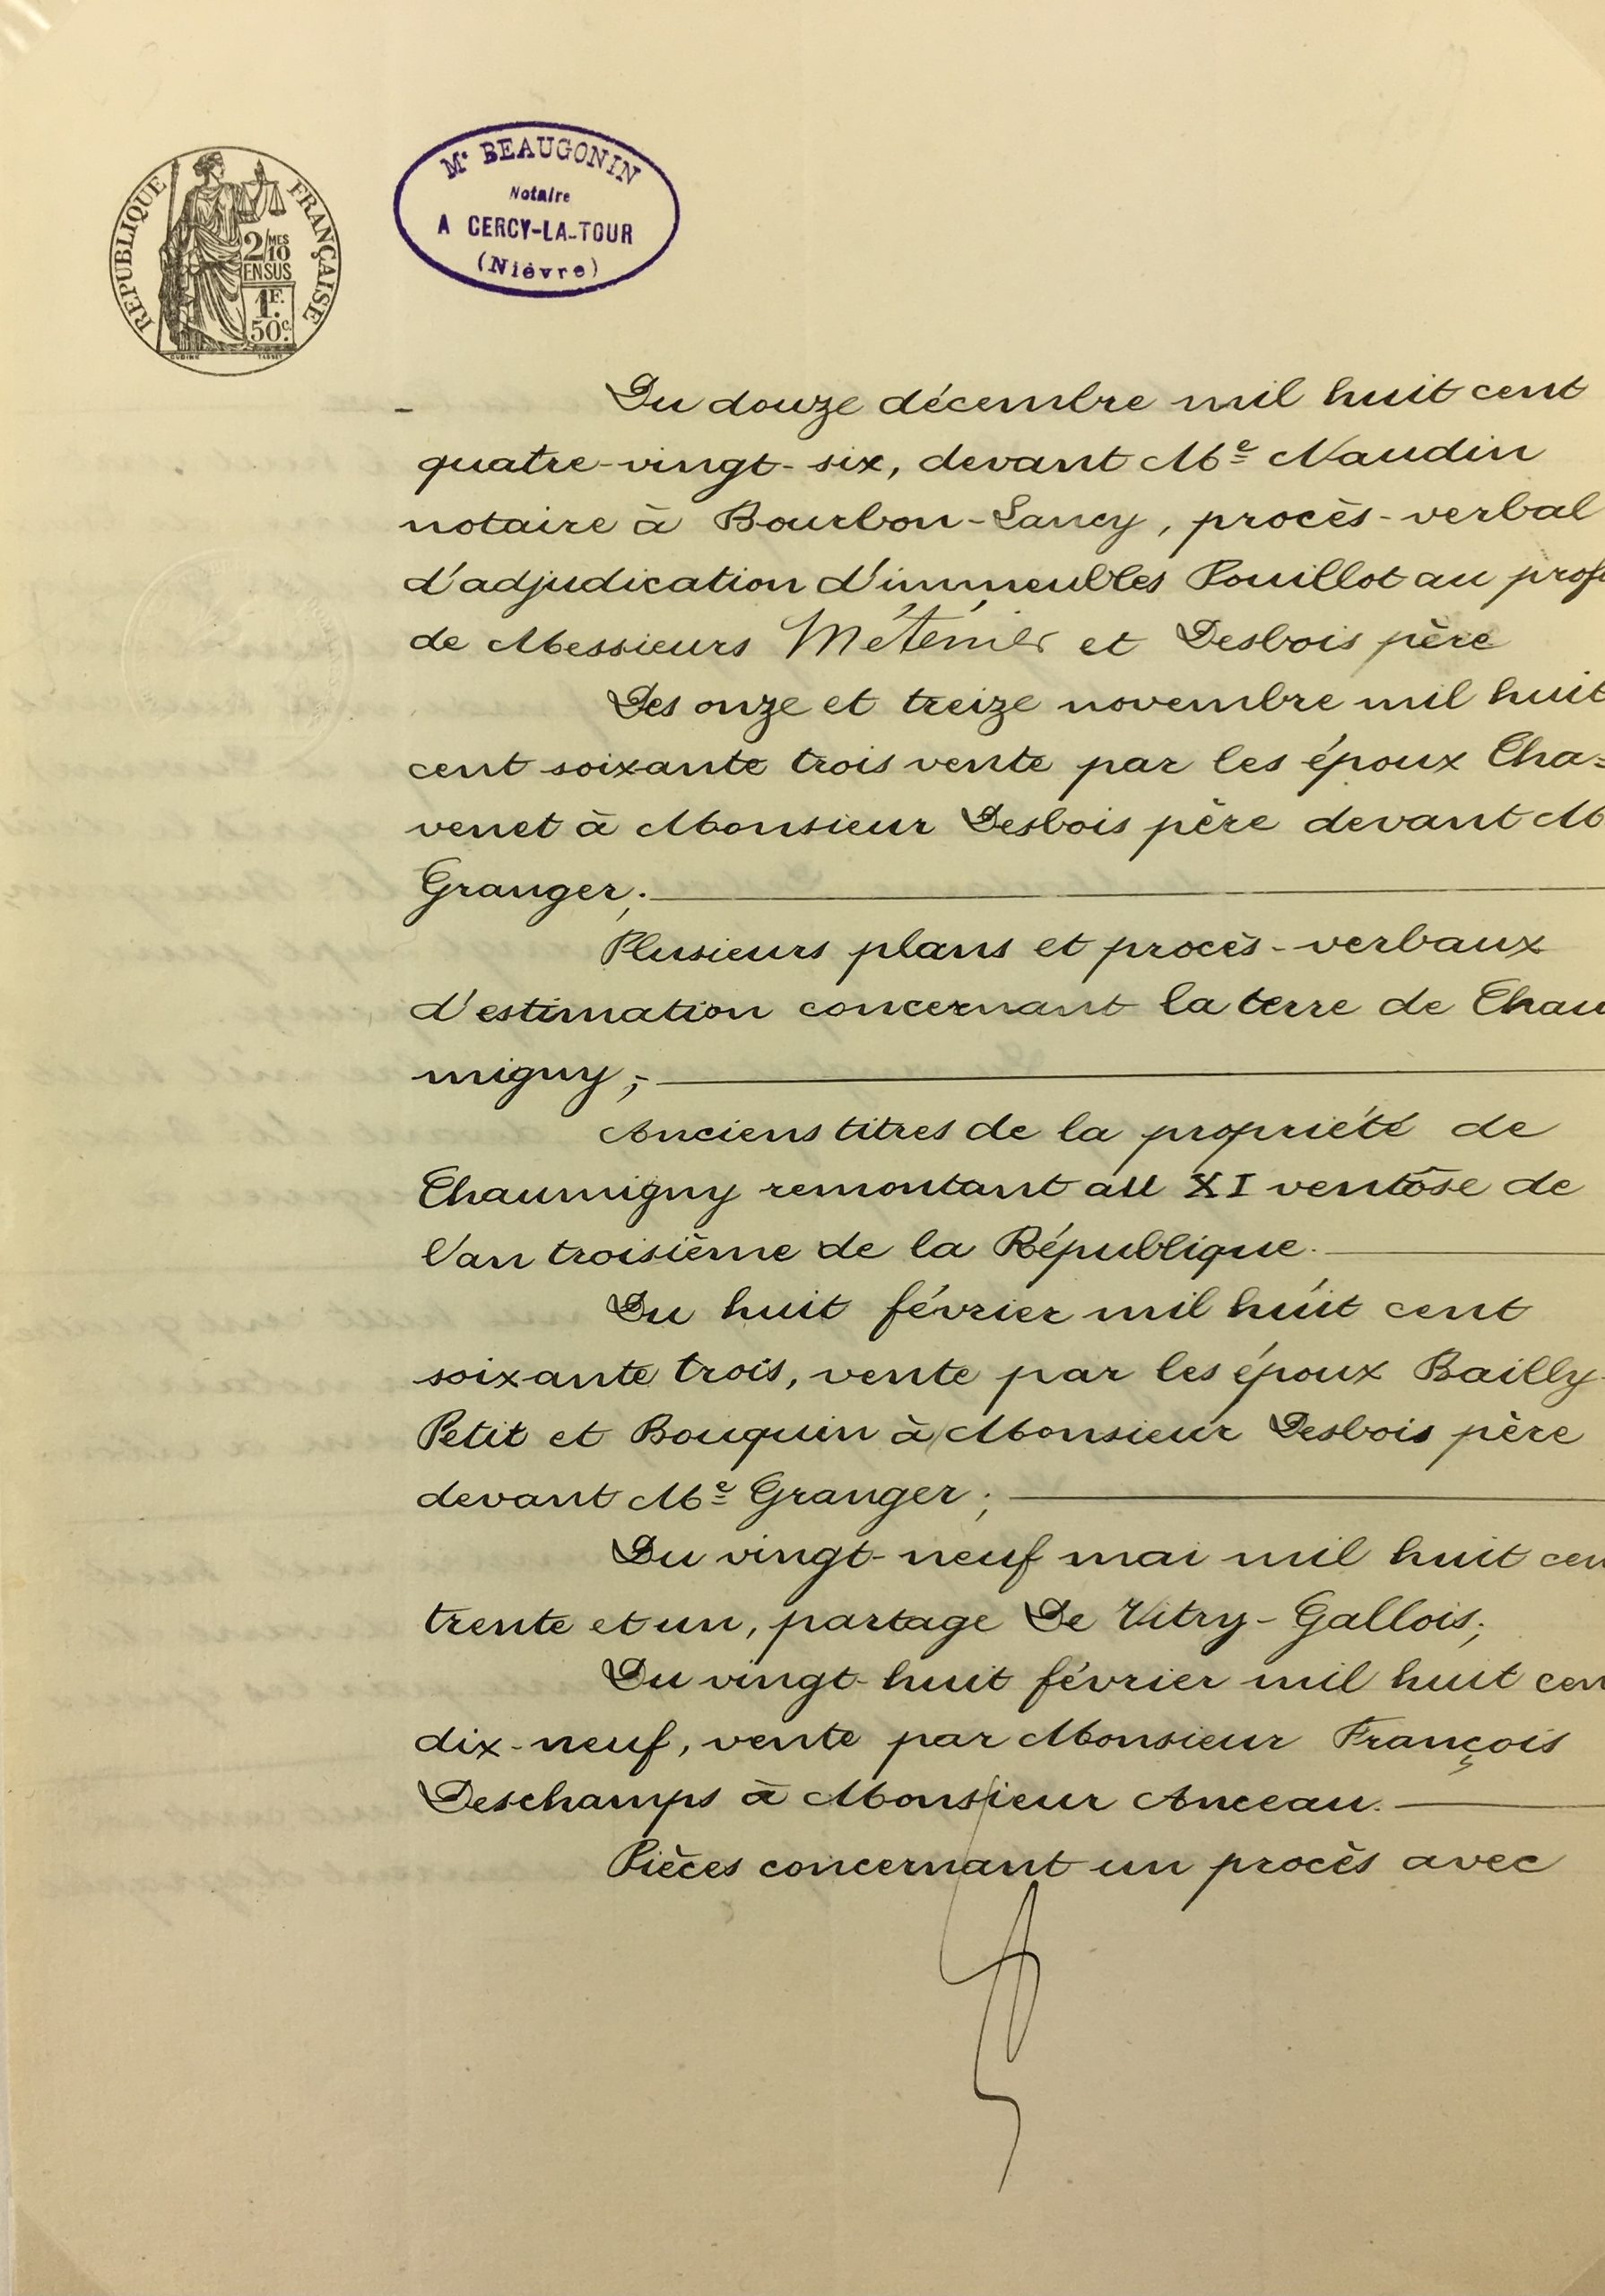 RÉPUBLIQUE FRANÇAISE
2/MES 10
EN SUS
1F.
50c.
OUDINÉ TASSET
Me BEAUGONIN
Notaire
A CERCY-LA-TOUR
(Nièvre)
Du douze décembre mil huit cent
quatre-vingt-six, devant Me Naudin
notaire à Bourbon-Lancy, procès-verbal
d'adjudication d'immeubles Pouillot au prof
de Messieurs Méténier et Desbois père
Des onze et treize novembre mil huit
cent soixante trois vente par les époux Cha=
venet à Monsieur Desbois père devant M
Granger;
Plusieurs plans et procès-verbaux
d'estimation concernant la terre de Chau
migny;
Anciens titres de la propriété de
Chaumigny remontant au XI ventôse de
l'an troisième de la République.
Du huit février mil huit cent
soixante trois, vente par les époux Bailly-
Petit et Bouquin à Monsieur Desbois père
devant Me Granger;
Du vingt-neuf mai mil huit cen
trente et un, partage De Vitry-Gallois;
Du vingt-huit février mil huit cen
dix-neuf, vente par Monsieur François
Deschamps à Monsieur Anceau.
Pièces concernant un procès avec